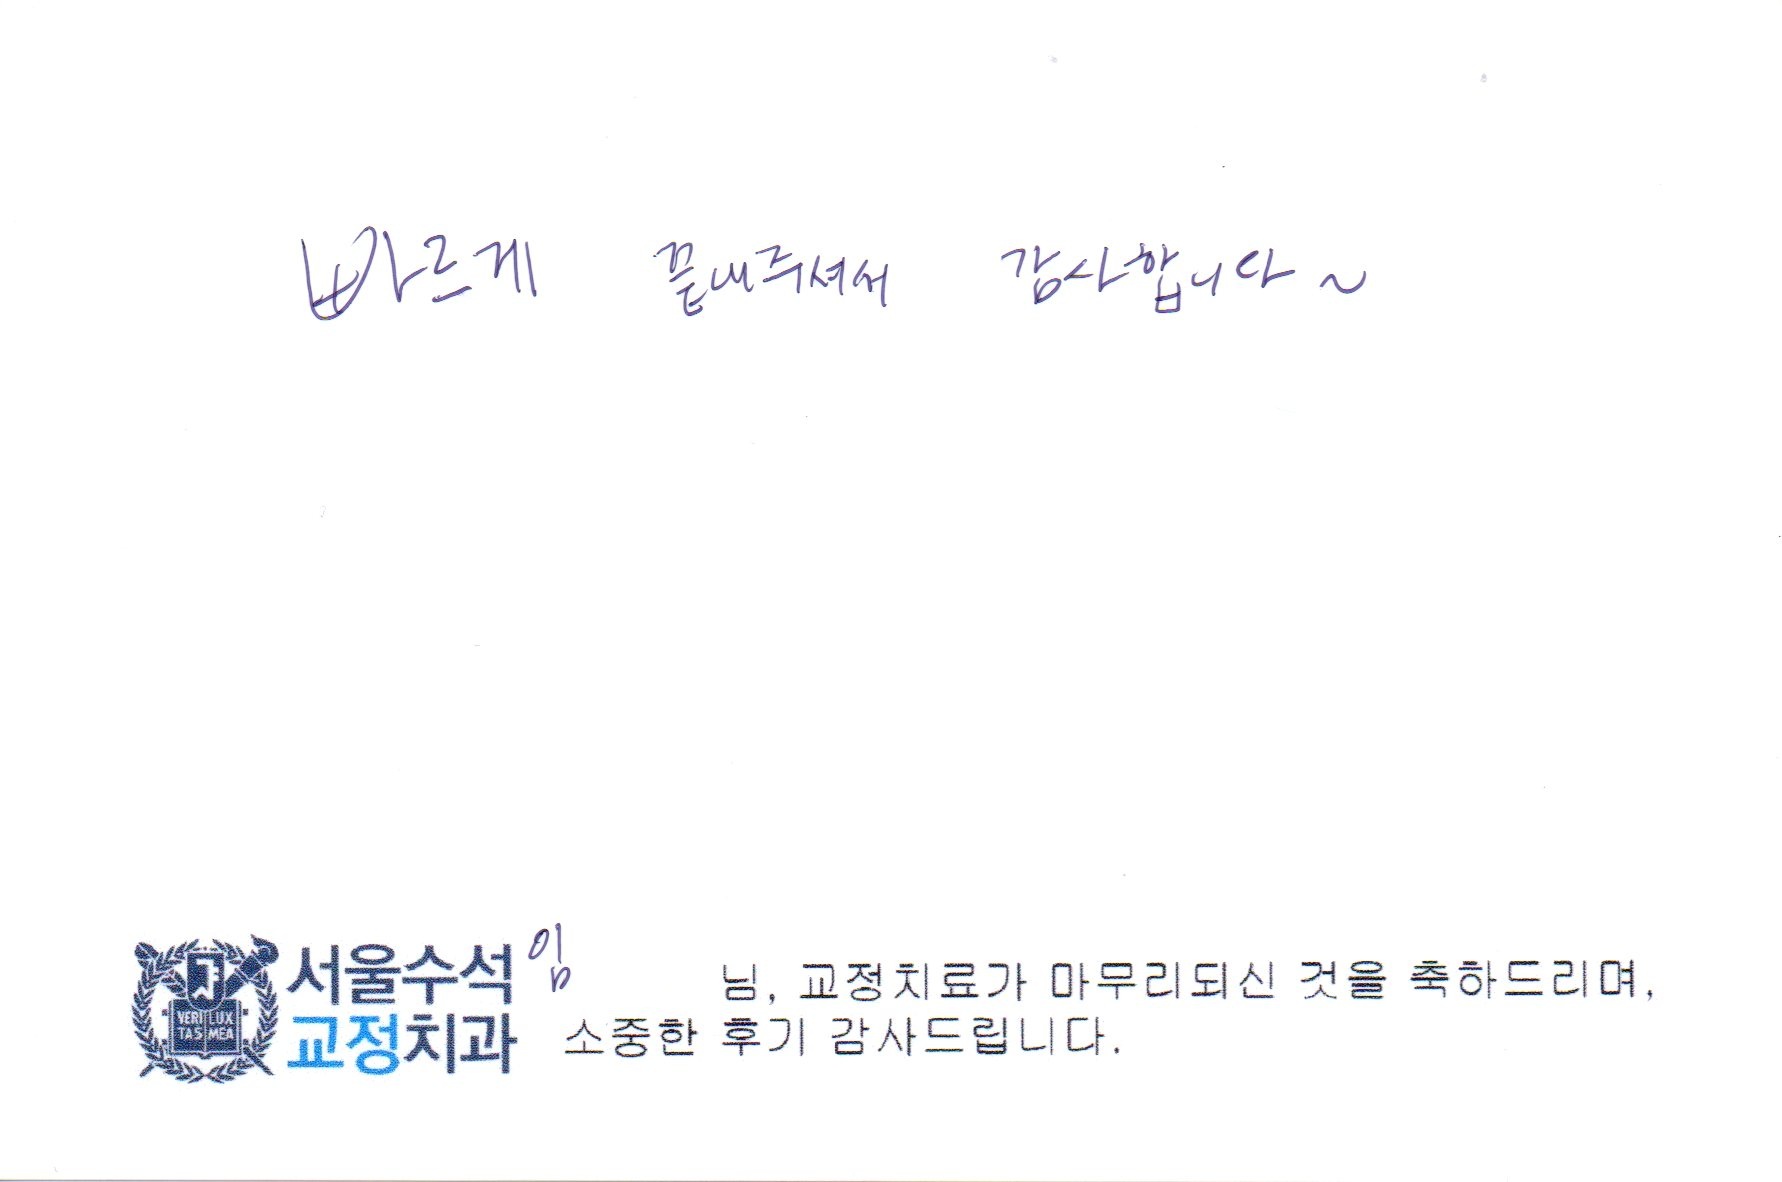 빠르게 끝내주셔서 감사합니다~
서울수석
교정치과
VERI LUX
TAS MEA
임 님, 교정치료가 마무리되신 것을 축하드리며,
소중한 후기 감사드립니다.